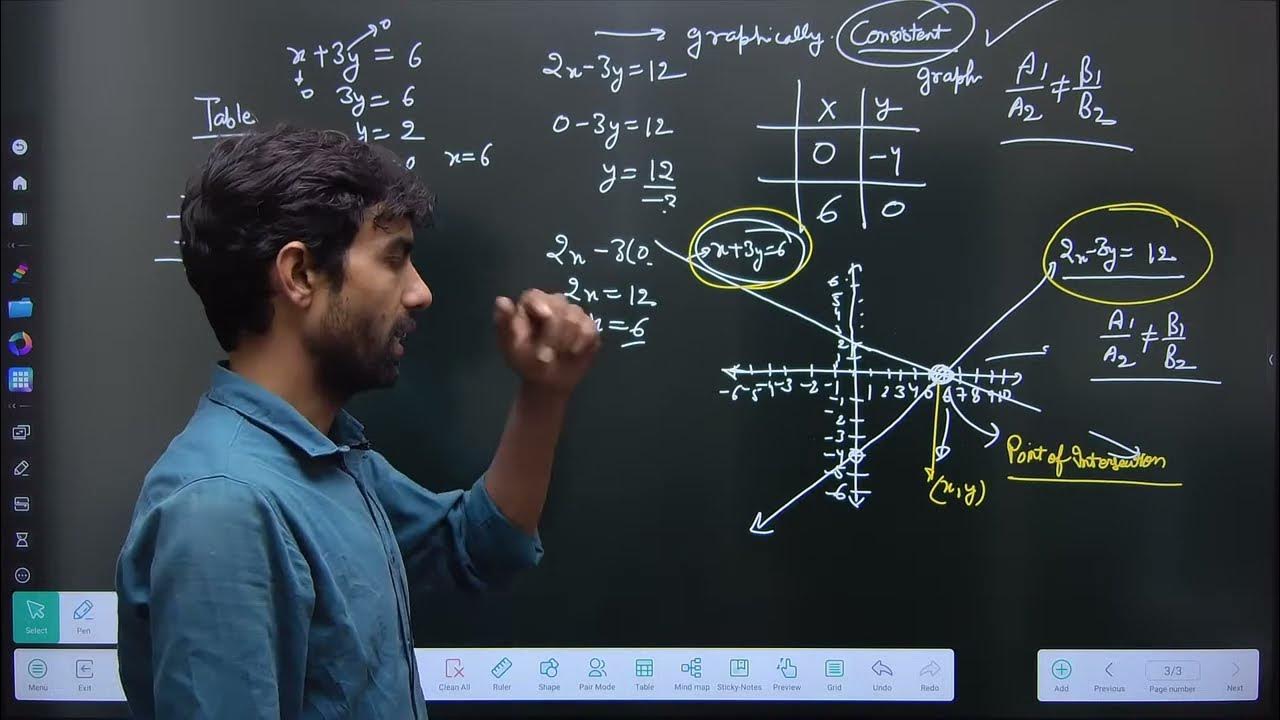 → graphically. Consistent
x+3y = 6
0
0
3y = 6
y = 2
0 x=6
Table
2x-3y=12
0-3y=12
y = 12
2x-3(0
2x=12
x=6
graph
A1/A2 ≠ B1/B2
x y
0 -4
6 0
x+3y=6
2x-3y= 12
A1/A2 ≠ B1/B2
6
5
4
3
2
1
-6 -5 -4 -3 -2 -1 1 2 3 4 5 6 7 8 9 10
-1
-2
-3
-4
-5
-6
Point of Intersection
(x,y)
Select Pen
Menu Exit Clean All Ruler Shape Pair Mode Table Mind map Sticky-Notes Preview Grid Undo Redo
Add Previous 3/3 Page number Next